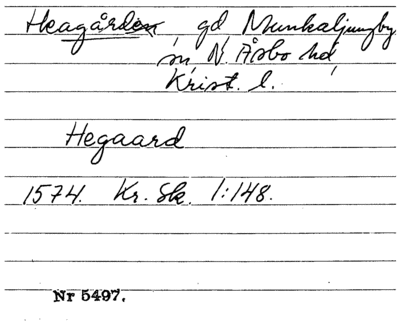 Heagården, gd, Munkaljungby
sn, N. Åsbo hd,
Krist. l.
Hegaard
1574. Kr. Sk. 1:148.
Nr 5497.